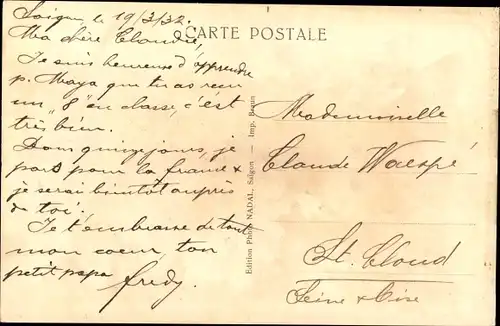 Saigon, le 19/3/32.
CARTE POSTALE
Ma chère Claudie,
Je suis heureuse d'apprendre
p. Maya que tu as reçu
un "8" en classe, c'est
très bien.
Dans quinze jours, je
pars pour la france &
je serai bientôt auprès
de toi.
Je t'embrasse de tout
mon coeur, ton
petit papa
fredy.
Edition Photo NADAL, Saigon — Imp. Braun
Mademoiselle
Claude Waespé
St. Cloud
Seine & Oise